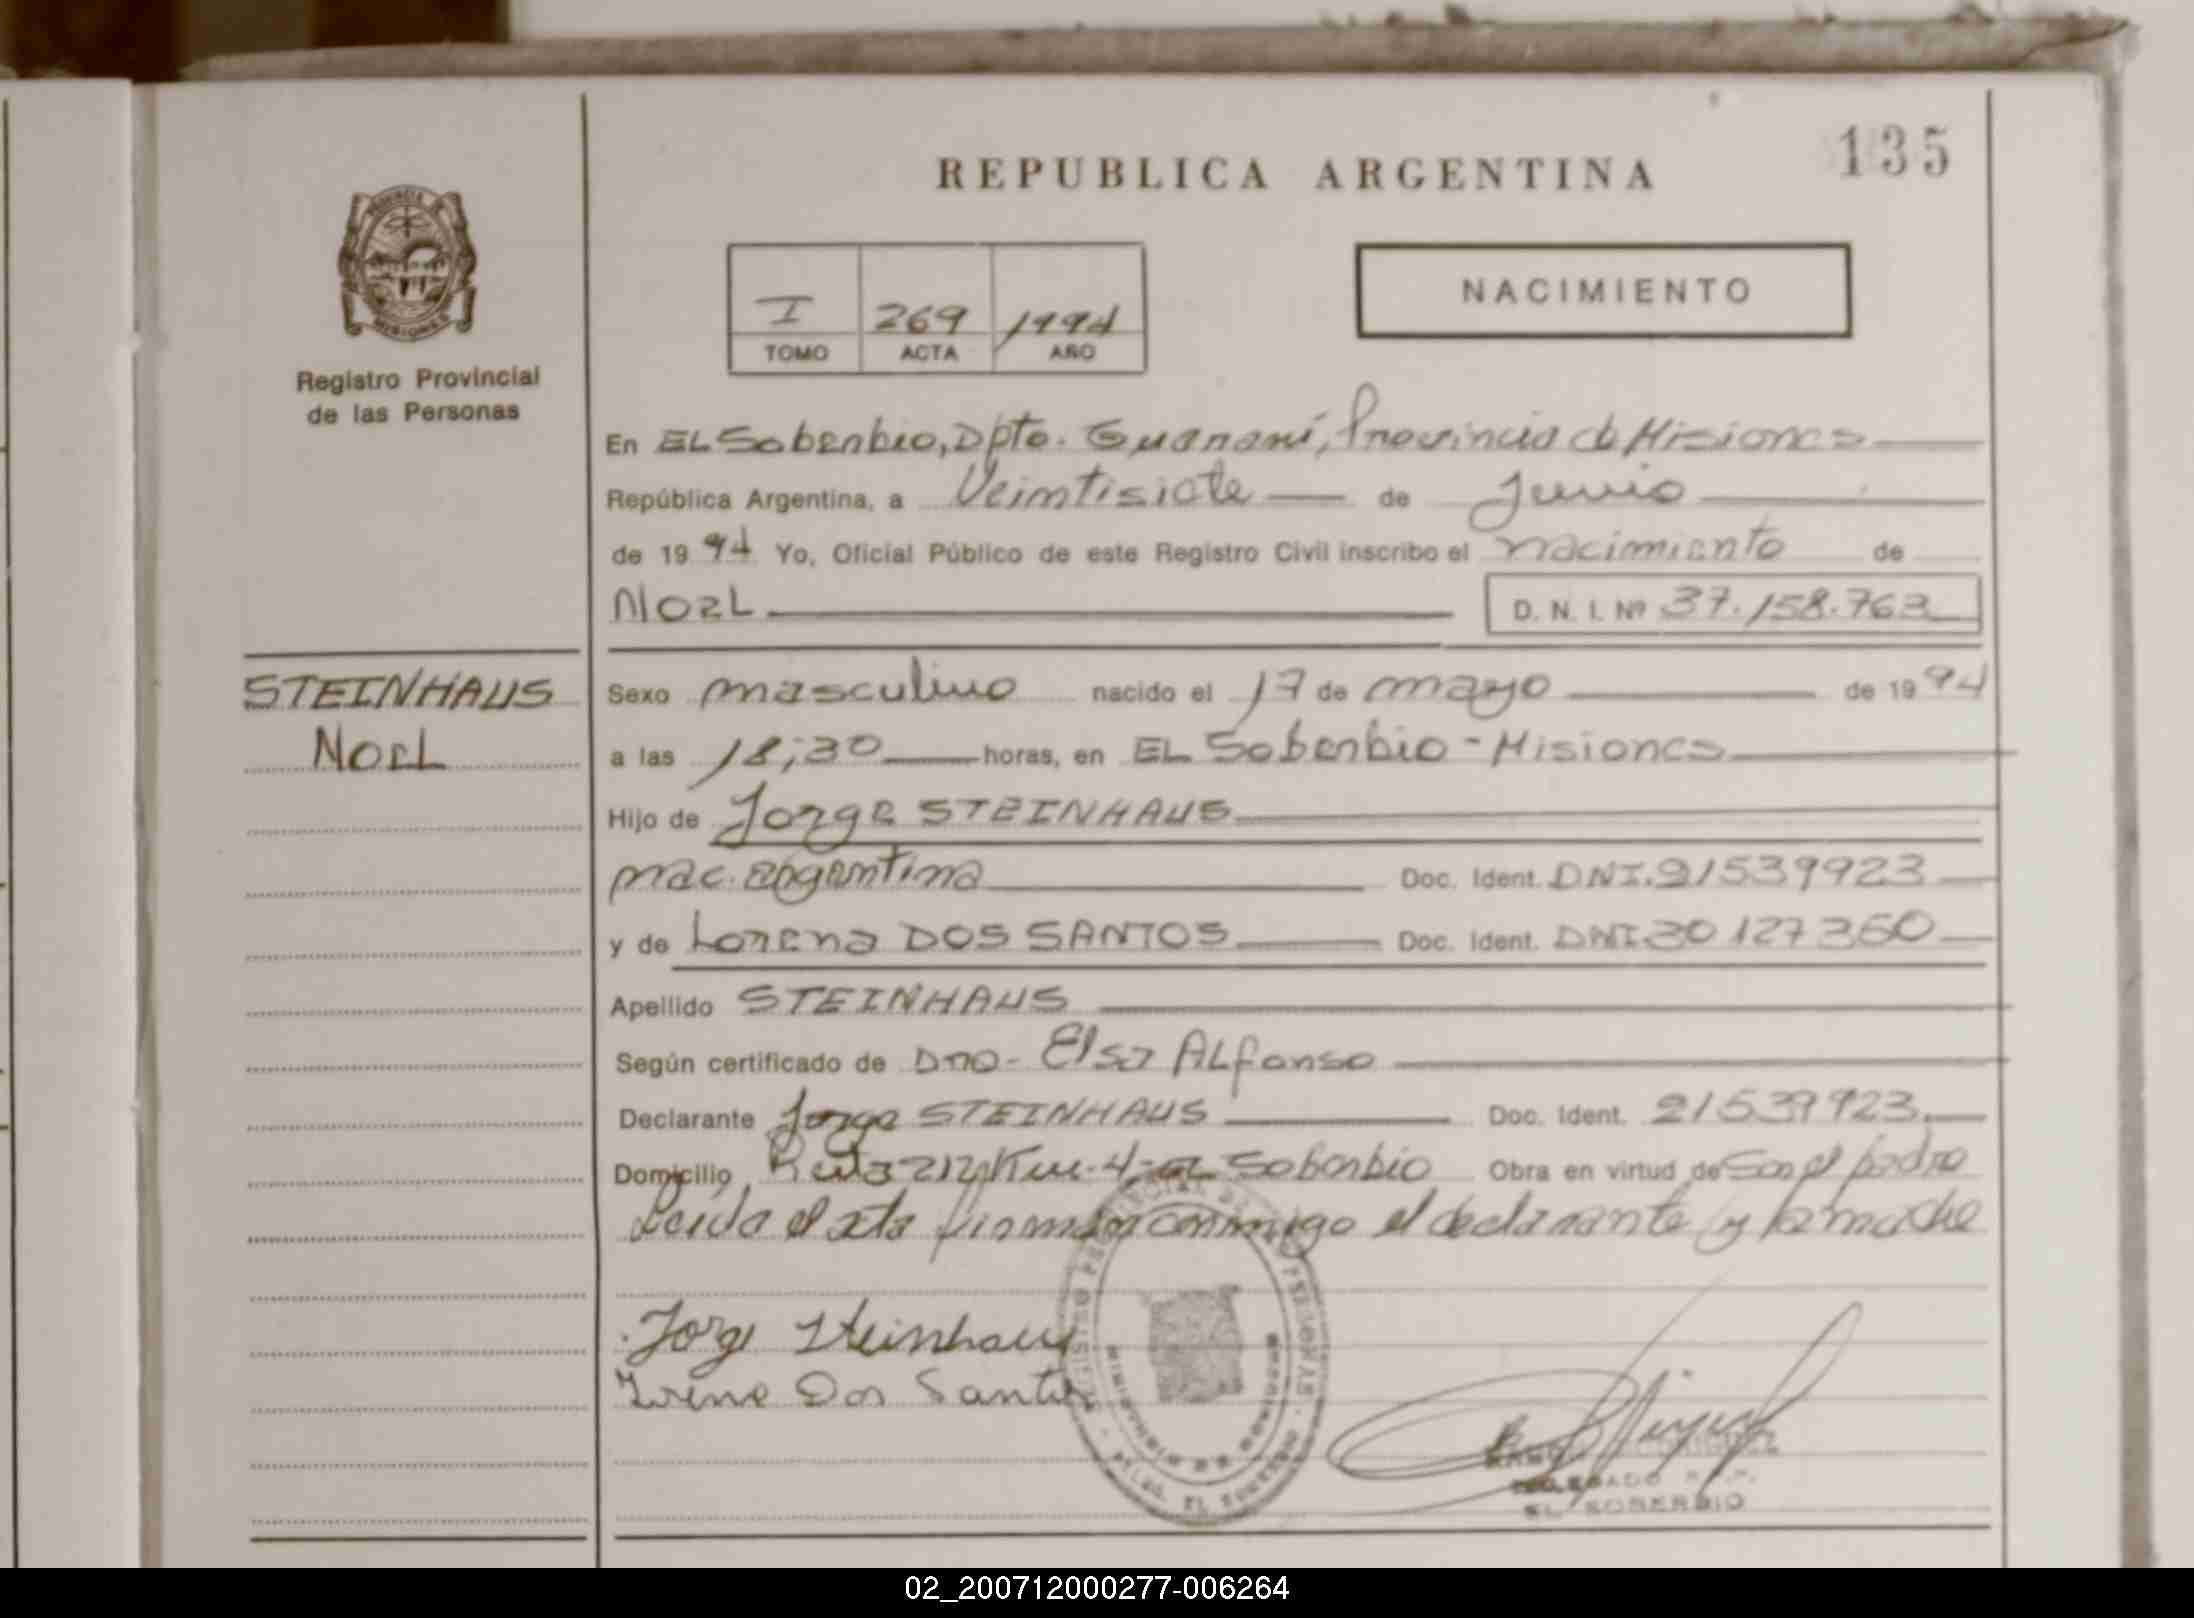 REPUBLICA ARGENTINA
135
PROVINCIA DE
MISIONES
Registro Provincial
de las Personas
I 269 1994
TOMO ACTA AÑO
NACIMIENTO
En EL Soberbio, Dpto. Guaraní, Provincia de Misiones
República Argentina, a Veintisiete de Junio
de 1994 Yo, Oficial Público de este Registro Civil inscribo el nacimiento de
NOEL D. N. I. Nº 37.158.763
STEINHAUS
NOEL
Sexo masculino nacido el 17 de mayo de 1994
a las 18;30 horas, en EL Soberbio - Misiones
Hijo de Jorge STEINHAUS
nac. argentina Doc. Ident. DNI.21539923
y de Lorena DOS SANTOS Doc. Ident. DNI.30 127 360
Apellido STEINHAUS
Según certificado de Dra- Elsa ALfonso
Declarante Jorge STEINHAUS Doc. Ident. 21539923.
Domicilio Ruta 212 Km-4- EL Soberbio Obra en virtud de Ser el padre
Leida el acta firman conmigo el declarante y la madre
Jorge Steinhaus
Dos Santos
REGISTRO PROVINCIAL DE LAS PERSONAS
MINISTERIO DE GOBIERNO
EL SOBERBIO
DELEGADO
EL SOBERBIO
02_200712000277-006264